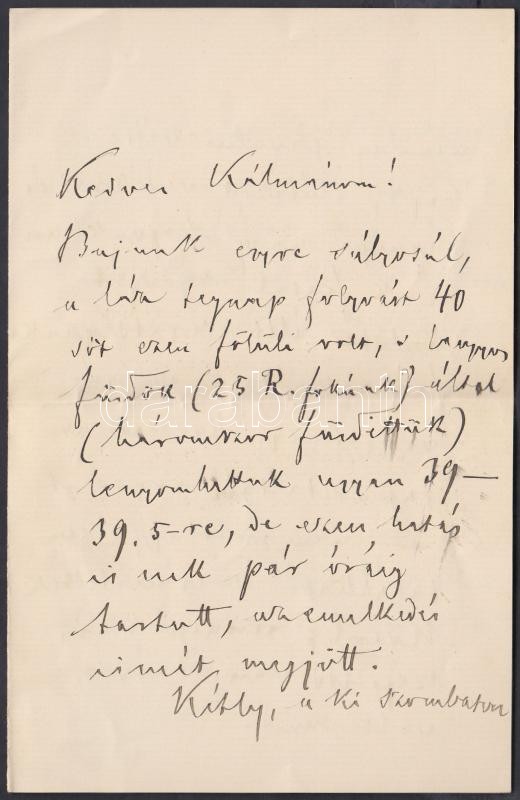 Kedves Kálmánom!
Bajunk egyre súlyosúl,
a láz tegnap folyvást 40
sőt ezen fölüli volt, s langyos
fürdők (25 R. fokúak) által
(háromszor fürdettük)
lenyomhattuk ugyan 39—
39.5-re, de ezen hatás
is csak pár óráig
tartott, az emelkedés
ismét megjött.
Kétly, a ki szombaton
darabanth